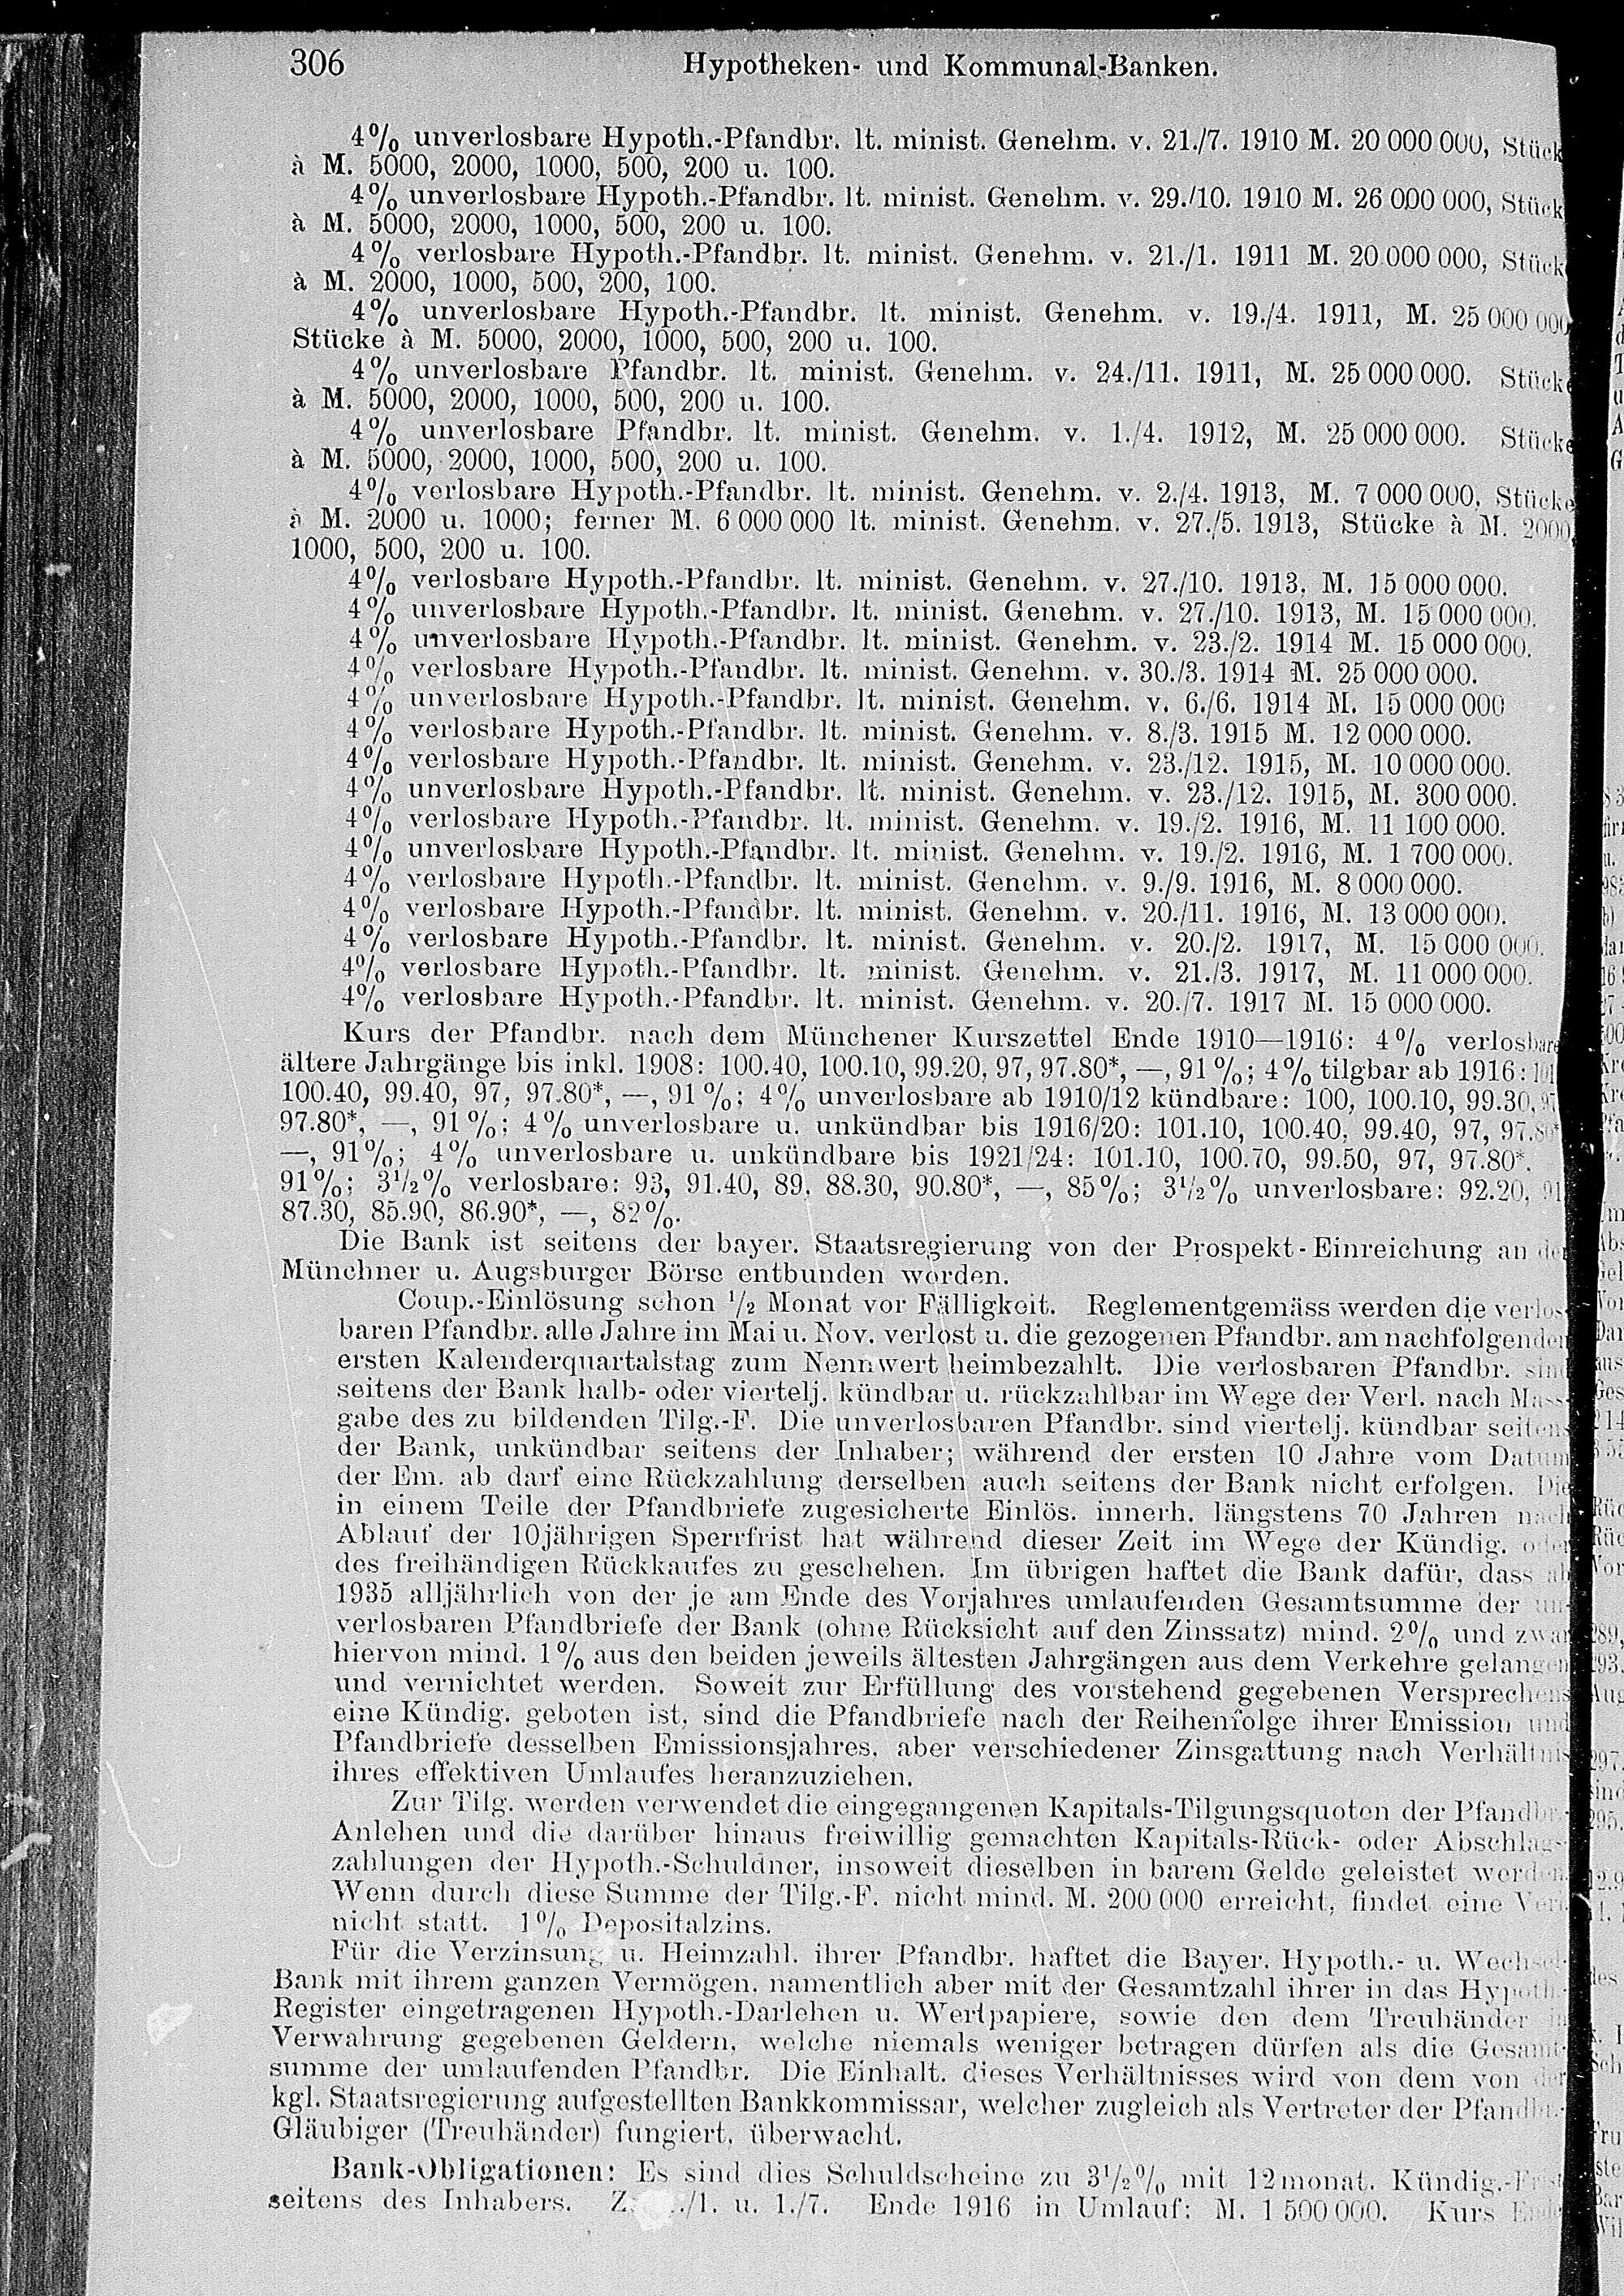 306 Hypotheken- und Kommunal-Banken.
4% unverlosbare Hypoth.-Pfandbr. lt. minist. Genehm. v. 21./7. 1910 M. 20 000 000, Stück
à M. 5000, 2000, 1000, 500, 200 u. 100.
4% unverlosbare Hypoth.-Pfandbr. lt. minist. Genehm. v. 29./10. 1910 M. 26 000 000, Stück
à M. 5000, 2000, 1000, 500, 200 u. 100.
4% verlosbare Hypoth.-Pfandbr. lt. minist. Genehm. v. 21./1. 1911 M. 20 000 000, Stück
à M. 2000, 1000, 500, 200, 100.
4% unverlosbare Hypoth.-Pfandbr. lt. minist. Genehm. v. 19./4. 1911, M. 25 000 000
Stücke à M. 5000, 2000, 1000, 500, 200 u. 100.
4% unverlosbare Pfandbr. lt. minist. Genehm. v. 24./11. 1911, M. 25 000 000. Stücke
à M. 5000, 2000, 1000, 500, 200 u. 100.
4% unverlosbare Pfandbr. lt. minist. Genehm. v. 1./4. 1912, M. 25 000 000. Stücke
à M. 5000, 2000, 1000, 500, 200 u. 100.
4% verlosbare Hypoth.-Pfandbr. lt. minist. Genehm. v. 2./4. 1913, M. 7 000 000, Stücke
à M. 2000 u. 1000; ferner M. 6 000 000 lt. minist. Genehm. v. 27./5. 1913, Stücke à M. 2000,
1000, 500, 200 u. 100.
4% verlosbare Hypoth.-Pfandbr. lt. minist. Genehm. v. 27./10. 1913, M. 15 000 000.
4% unverlosbare Hypoth.-Pfandbr. lt. minist. Genehm. v. 27./10. 1913, M. 15 000 000.
4% unverlosbare Hypoth.-Pfandbr. lt. minist. Genehm. v. 23./2. 1914 M. 15 000 000.
4% verlosbare Hypoth.-Pfandbr. lt. minist. Genehm. v. 30./3. 1914 M. 25 000 000.
4% unverlosbare Hypoth.-Pfandbr. lt. minist. Genehm. v. 6./6. 1914 M. 15 000 000
4% verlosbare Hypoth.-Pfandbr. lt. minist. Genehm. v. 8./3. 1915 M. 12 000 000.
4% verlosbare Hypoth.-Pfandbr. lt. minist. Genehm. v. 23./12. 1915, M. 10 000 000.
4% unverlosbare Hypoth.-Pfandbr. lt. minist. Genehm. v. 23./12. 1915, M. 300 000.
4% verlosbare Hypoth.-Pfandbr. lt. minist. Genehm. v. 19./2. 1916, M. 11 100 000.
4% unverlosbare Hypoth.-Pfandbr. lt. minist. Genehm. v. 19./2. 1916, M. 1 700 000.
4% verlosbare Hypoth.-Pfandbr. lt. minist. Genehm. v. 9./9. 1916, M. 8 000 000.
4% verlosbare Hypoth.-Pfandbr. lt. minist. Genehm. v. 20./11. 1916, M. 13 000 000.
4% verlosbare Hypoth.-Pfandbr. lt. minist. Genehm. v. 20./2. 1917, M. 15 000 000.
4% verlosbare Hypoth.-Pfandbr. lt. minist. Genehm. v. 21./3. 1917, M. 11 000 000.
4% verlosbare Hypoth.-Pfandbr. lt. minist. Genehm. v. 20./7. 1917 M. 15 000 000.
Kurs der Pfandbr. nach dem Münchener Kurszettel Ende 1910—1916: 4% verlosbare
ältere Jahrgänge bis inkl. 1908: 100.40, 100.10, 99.20, 97, 97.80*, —, 91%; 4% tilgbar ab 1916:
100.40, 99.40, 97, 97.80*, —, 91%; 4% unverlosbare ab 1910/12 kündbare: 100, 100.10, 99.30, 97
97.80*, —, 91%; 4% unverlosbare u. unkündbar bis 1916/20: 101.10, 100.40, 99.40, 97, 97.80*
—, 91%; 4% unverlosbare u. unkündbare bis 1921/24: 101.10, 100.70, 99.50, 97, 97.80*.
91%; 3½% verlosbare: 93, 91.40, 89, 88.30, 90.80*, —, 85%; 3½% unverlosbare: 92.20,
87.30, 85.90, 86.90*, —, 82%.
Die Bank ist seitens der bayer. Staatsregierung von der Prospekt-Einreichung an der
Münchner u. Augsburger Börse entbunden worden.
Coup.-Einlösung schon ½ Monat vor Fälligkeit. Reglementgemäss werden die verlos-
baren Pfandbr. alle Jahre im Mai u. Nov. verlost u. die gezogenen Pfandbr. am nachfolgenden
ersten Kalenderquartalstag zum Nennwert heimbezahlt. Die verlosbaren Pfandbr. sind
seitens der Bank halb- oder viertelj. kündbar u. rückzahlbar im Wege der Verl. nach Mass-
gabe des zu bildenden Tilg.-F. Die unverlosbaren Pfandbr. sind viertelj. kündbar seitens
der Bank, unkündbar seitens der Inhaber; während der ersten 10 Jahre vom Datum
der Em. ab darf eine Rückzahlung derselben auch seitens der Bank nicht erfolgen. Die
in einem Teile der Pfandbriefe zugesicherte Einlös. innerh. längstens 70 Jahren nach
Ablauf der 10jährigen Sperrfrist hat während dieser Zeit im Wege der Kündig. oder
des freihändigen Rückkaufes zu geschehen. Im übrigen haftet die Bank dafür, dass ab
1935 alljährlich von der je am Ende des Vorjahres umlaufenden Gesamtsumme der un-
verlosbaren Pfandbriefe der Bank (ohne Rücksicht auf den Zinssatz) mind. 2% und zwar
hiervon mind. 1% aus den beiden jeweils ältesten Jahrgängen aus dem Verkehre gelangen
und vernichtet werden. Soweit zur Erfüllung des vorstehend gegebenen Versprechens
eine Kündig. geboten ist, sind die Pfandbriefe nach der Reihenfolge ihrer Emission und
Pfandbriefe desselben Emissionsjahres, aber verschiedener Zinsgattung nach Verhältnis
ihres effektiven Umlaufes heranzuziehen.
Zur Tilg. werden verwendet die eingegangenen Kapitals-Tilgungsquoten der Pfandbr.-
Anlehen und die darüber hinaus freiwillig gemachten Kapitals-Rück- oder Abschlags-
zahlungen der Hypoth.-Schuldner, insoweit dieselben in barem Gelde geleistet werden.
Wenn durch diese Summe der Tilg.-F. nicht mind. M. 200 000 erreicht, findet eine Verl.
nicht statt. 1% Depositalzins.
Für die Verzinsung u. Heimzahl. ihrer Pfandbr. haftet die Bayer. Hypoth.- u. Wechsel-
Bank mit ihrem ganzen Vermögen, namentlich aber mit der Gesamtzahl ihrer in das Hypoth.-
Register eingetragenen Hypoth.-Darlehen u. Wertpapiere, sowie den dem Treuhänder in
Verwahrung gegebenen Geldern, welche niemals weniger betragen dürfen als die Gesamt-
summe der umlaufenden Pfandbr. Die Einhalt. dieses Verhältnisses wird von dem von der
kgl. Staatsregierung aufgestellten Bankkommissar, welcher zugleich als Vertreter der Pfandbr.-
Gläubiger (Treuhänder) fungiert, überwacht.
Bank-Obligationen: Es sind dies Schuldscheine zu 3½% mit 12monat. Kündig.-Frist
seitens des Inhabers. /1. u. 1./7. Ende 1916 in Umlauf: M. 1 500 000. Kurs Ende